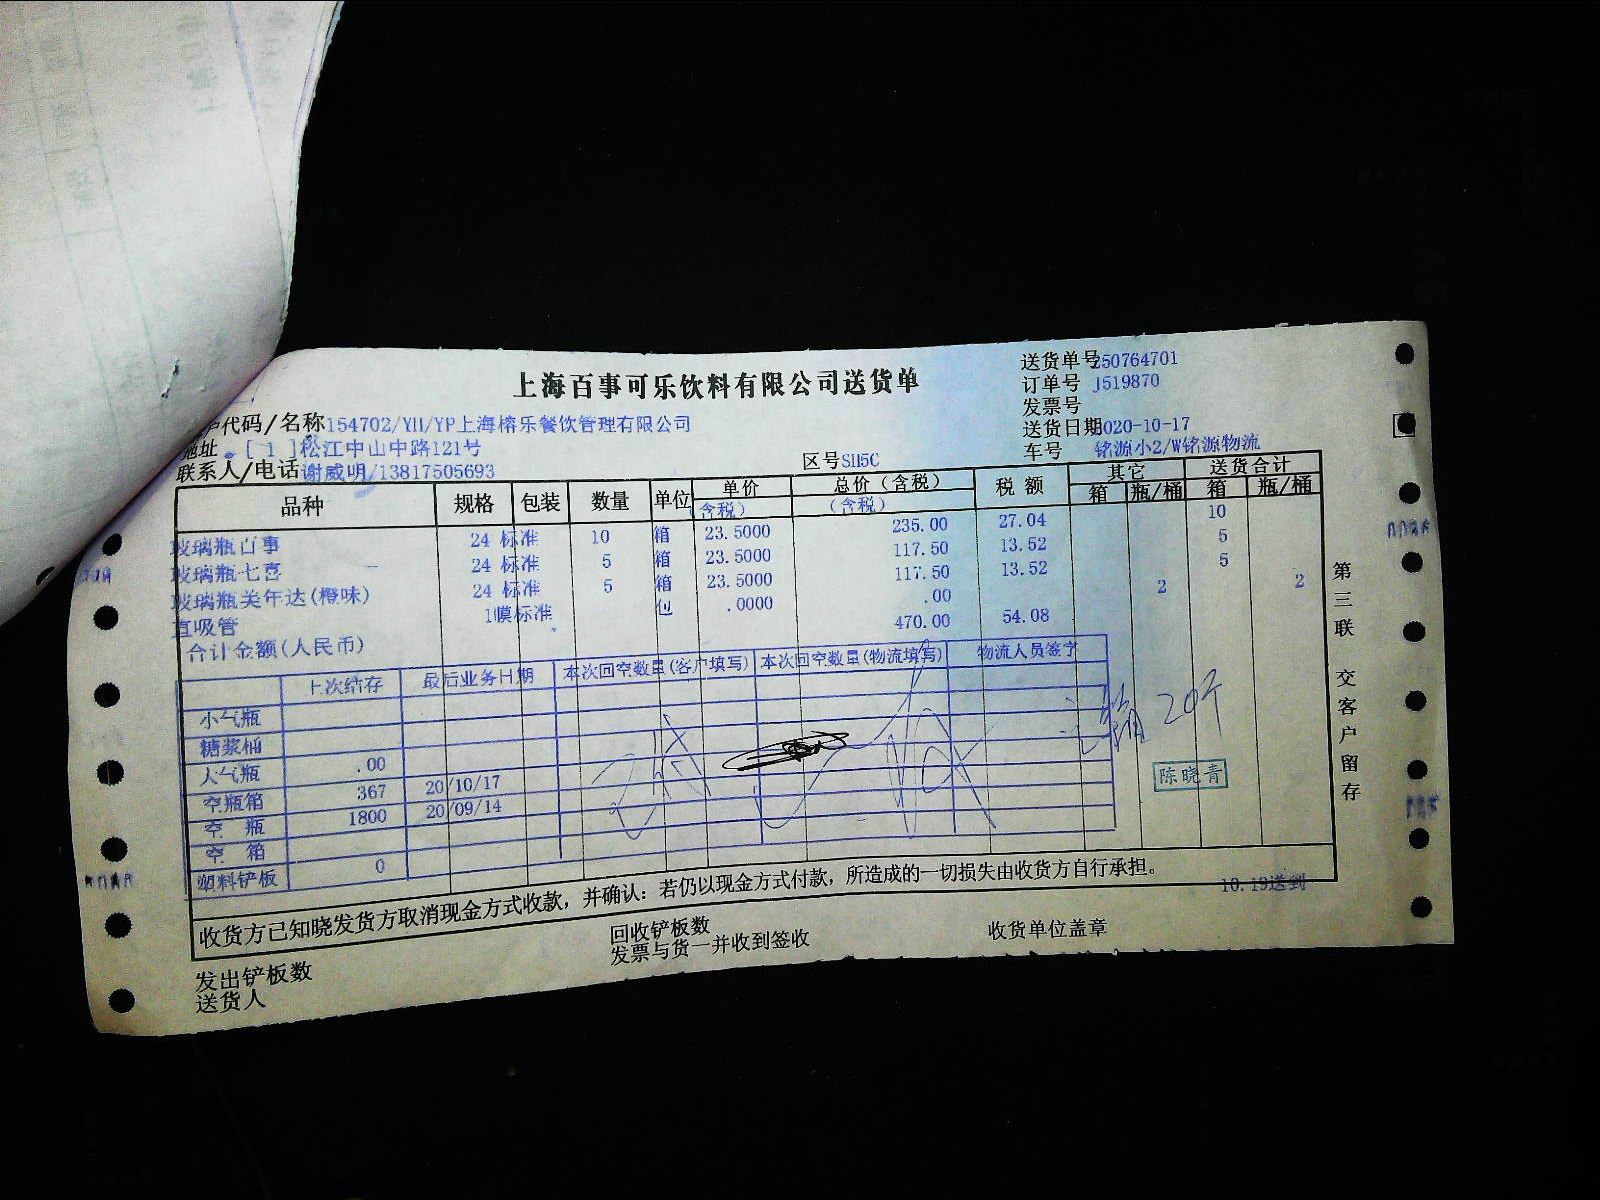 上海百事可乐饮料有限公司送货单
送货单号250764701
订单号 J519870
发票号
送货日期2020-10-17
车号 铭源小2/W铭源物流
户代码/名称154702/YH/YP上海榕乐餐饮管理有限公司
地址 [ 1 ]松江中山中路121号
联系人/电话谢威明/13817505693
区号SH5C
品种 规格 包装 数量 单位 单价 总价(含税) 税额 其它 送货合计
(含税) (含税) 箱 瓶/桶 箱 瓶/桶
玻璃瓶百事 24 标准 10 箱 23.5000 235.00 27.04 10
玻璃瓶七喜 24 标准 5 箱 23.5000 117.50 13.52 5
玻璃瓶美年达(橙味) 24 标准 5 箱 23.5000 117.50 13.52 5
直吸管 1膜标准 包 .0000 .00 2 2
合计金额(人民币) 470.00 54.08
上次结存 最后业务日期 本次回空数量(客户填写) 本次回空数量(物流填写) 物流人员签字
小气瓶
糖浆桶
大气瓶 .00
空瓶箱 367 20/10/17
空 瓶 1800 20/09/14
空 箱
塑料铲板 0
箱 20个
陈晓青
收货方已知晓发货方取消现金方式收款，并确认：若仍以现金方式付款，所造成的一切损失由收货方自行承担。
10.19送到
发出铲板数 回收铲板数 收货单位盖章
送货人 发票与货一并收到签收
第三联 交客户留存